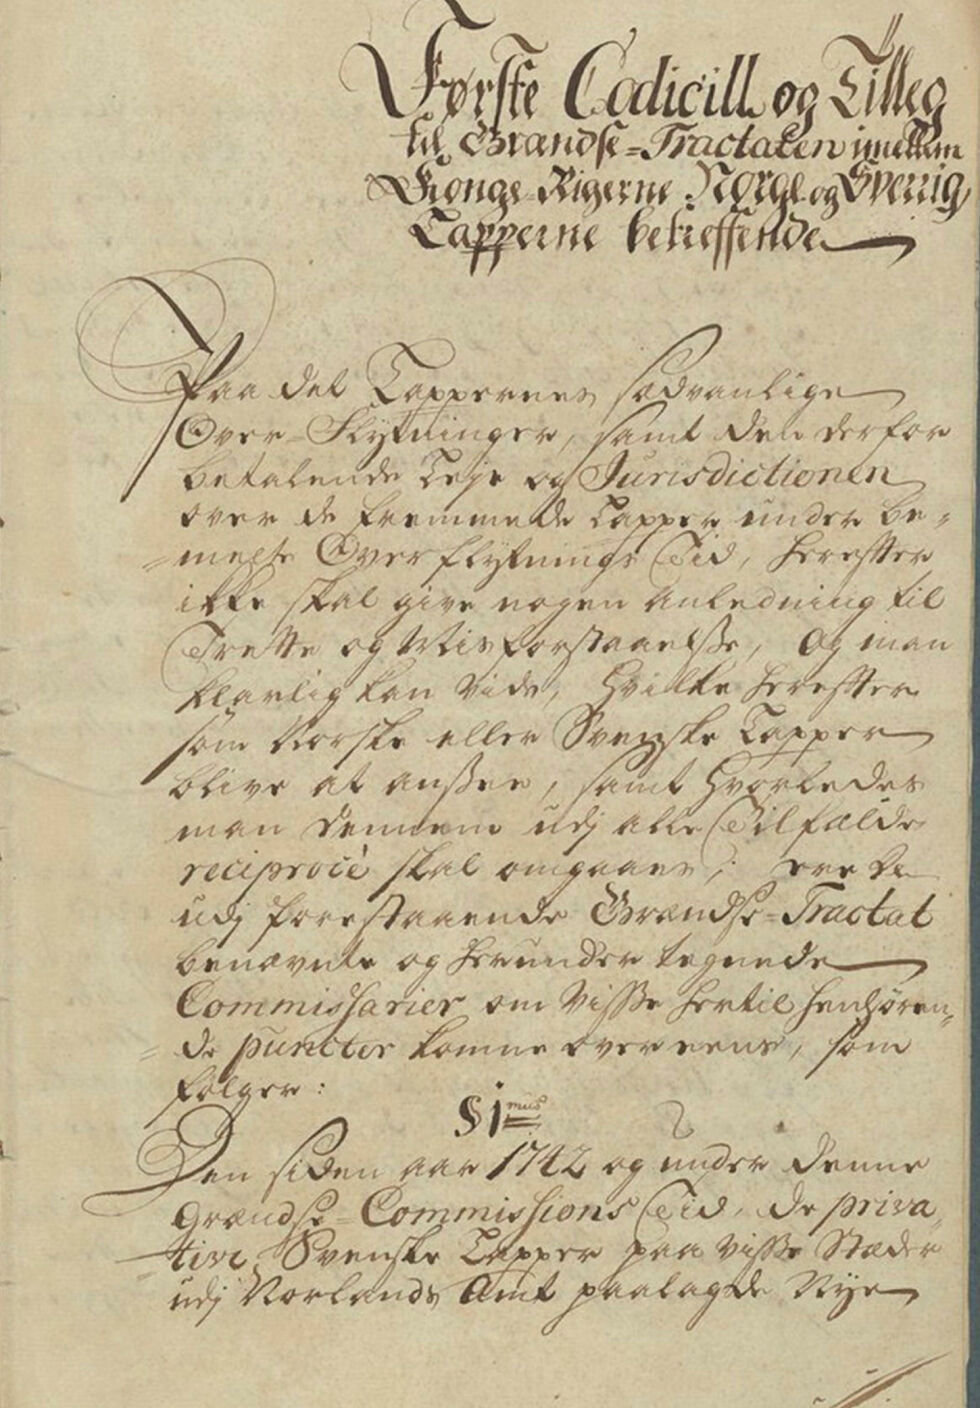 Første Codicill og Tilleg
til Grændse-Tractaten imellem
Konge-Rigerne Norge og Sverrig
Lapperne betreffende
Paa det Lappernes sædvanlige
Over-Flytninger, samt den derfor
betalende Leje og Jurisdictionen
over de fremmede Lapper under be-
-melte Overflytnings Tid, herefter
ikke skal give nogen anledning til
Trette og Misforstaaelse, Og man
klarlig kan vide, hvilke herefter
som Norske eller Svenske Lapper
blive at ansee, samt hvorledes
man dennem udj alle Tilfælde
reciprocè skal omgaaes; ere de
udj forestaaende Grændse-Tractat
benævnte og herunder tegnede
Commissarier om visse hertil henhøren-
-de puncter komne overeens, som
følger:
§ 1mus
Den siden aar 1742 og under denne
Grændse-Commissions Tid, de priva-
-tive Svenske Lapper paa visse Stæder
udj Norlands Amt paalagde Nye